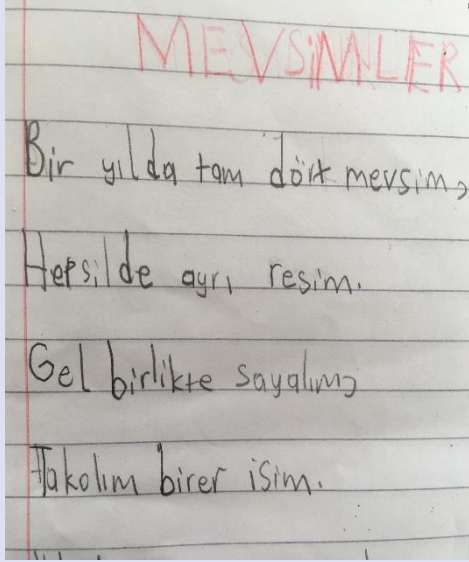 MEVSİMLER
Bir yılda tam dört mevsim,
Hepsilde ayrı resim.
Gel birlikte sayalım,
Takolım birer isim.